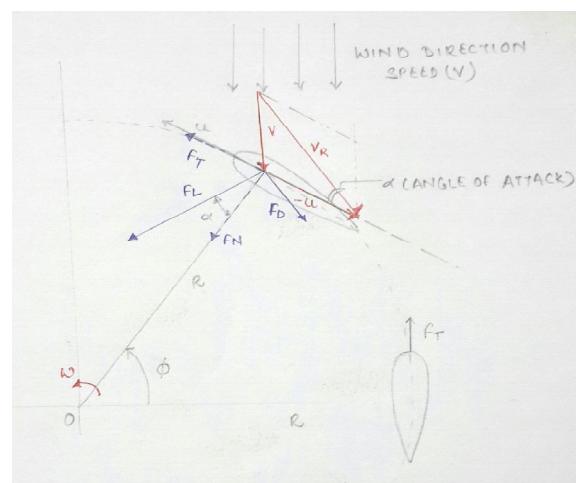 WIND DIRECTION
SPEED (V)
u
V
VR
FT
FL
α
-u
α (ANGLE OF ATTACK)
FD
FN
R
FT
ω
ϕ
O
R